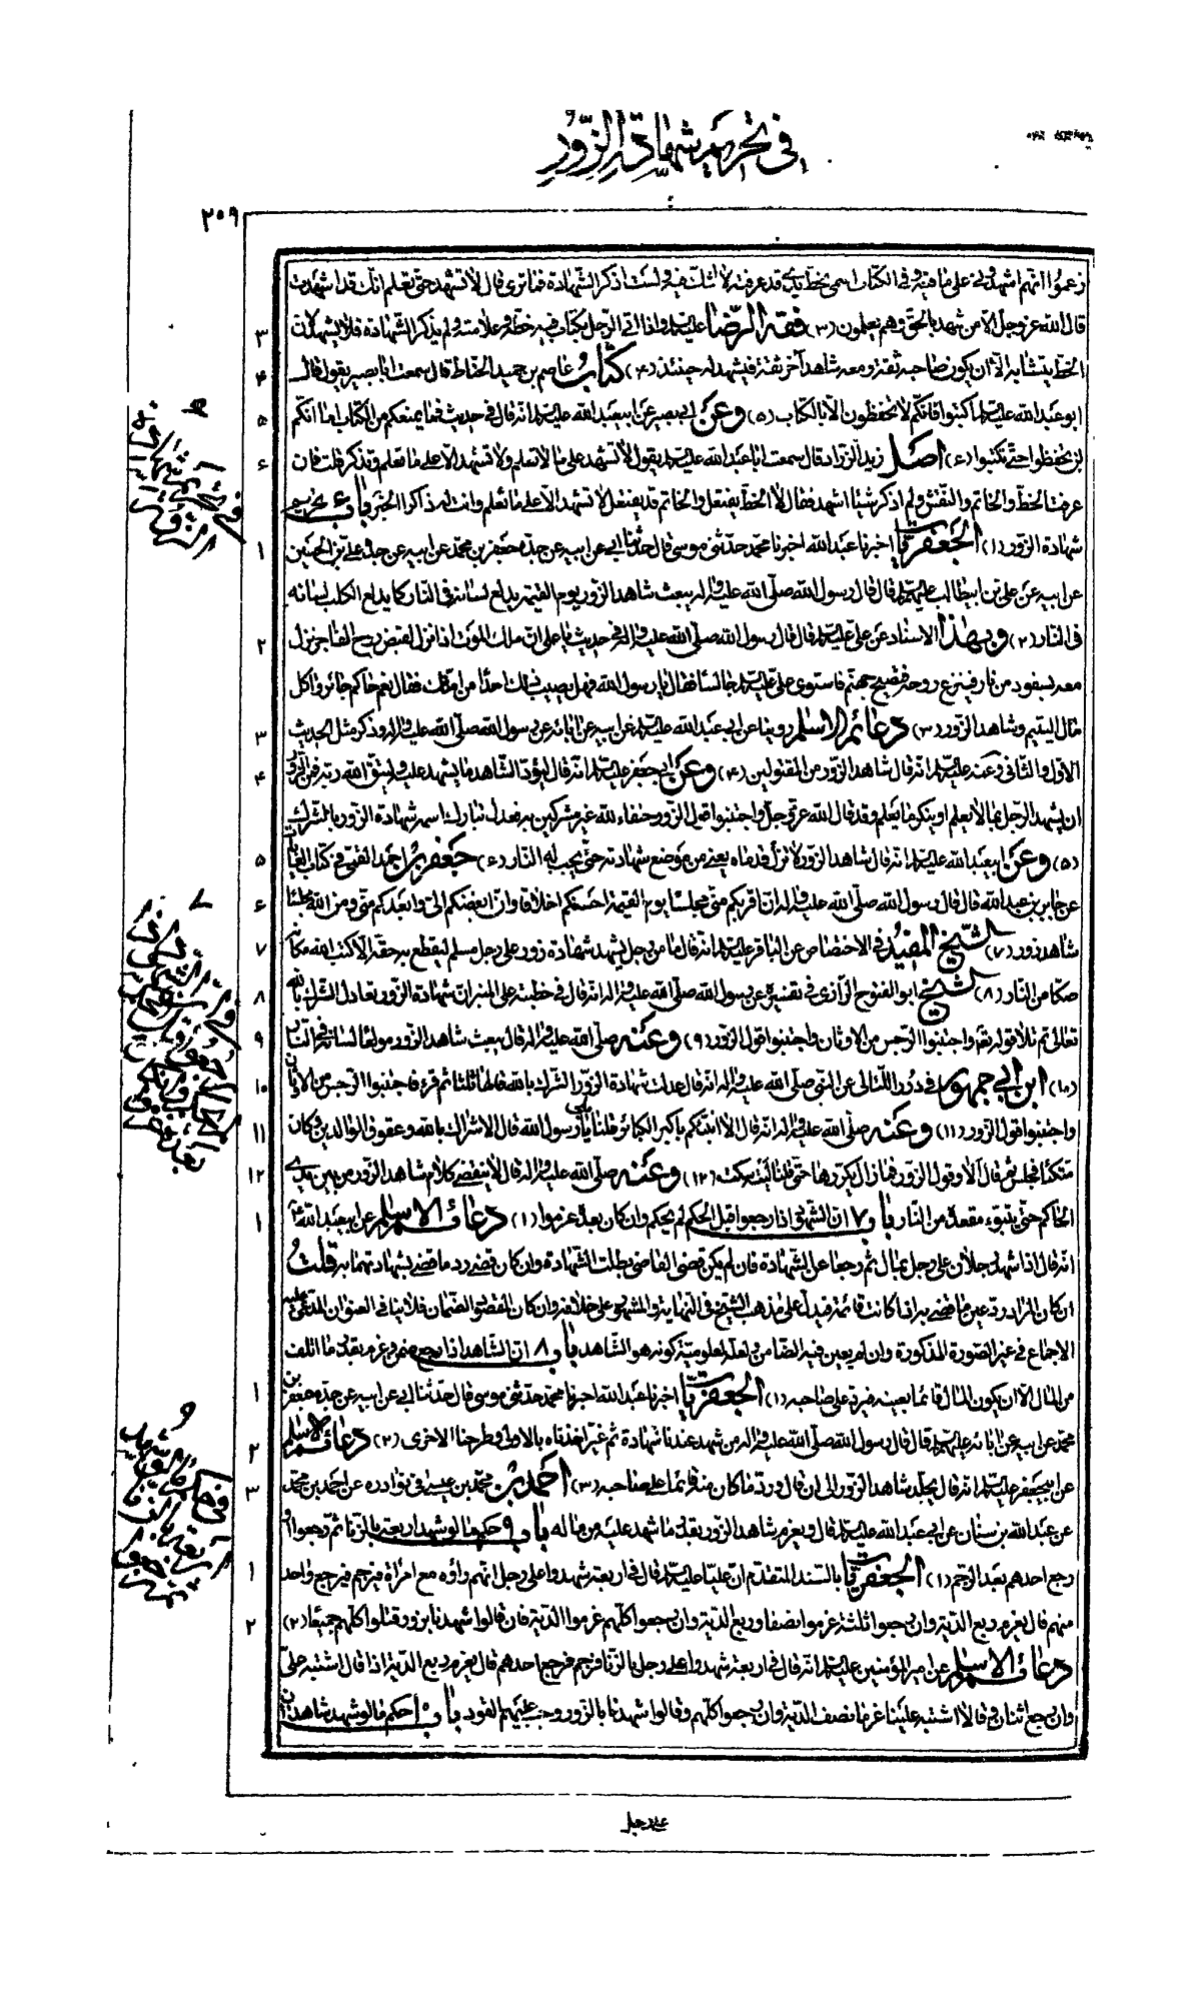 في تحريم شهادة الزور
٢٠٩
زعموا انهم اشهدوني على ما فيه وفي الكتاب اسمي بخط يدي قد عرفته لا اشك فيه ولست اذكر الشهادة فما ترى قال لا تشهد حتى تعلم انك قد اشهدت
قال الله عز وجل الا من شهد بالحق وهم يعلمون (٣) فقه الرضا عليه السلام واذا اتى الرجل بكتاب فيه خطه وعلامته ولم يذكر الشهادة فلا يشهد لان
الخط يتشابه الا ان يكون صاحبه ثقة ومعه شاهد آخر ثقة فيشهد له حينئذ (٤) كتاب عاصم بن حميد الحناط قال سمعت ابا بصير يقول قال
ابو عبد الله عليه السلام اكتبوا فانكم لا تحفظون الا بالكتاب (٥) وعن ابي بصير عن ابي عبد الله عليه السلام انه قال في حديث فما يمنعكم من الكتاب اما انكم
لن تحفظوا حتى تكتبوا (٦) اصل زيد الزراد قال سمعت ابا عبد الله عليه السلام يقول لا تشهد على ما لا تعلم ولا تشهد الا على ما تعلم وتذكر قلت فان
عرفت الخط والخاتم والنقش ولم اذكر شيئا اشهد فقال لا الخط يفتعل والخاتم قد يفتعل لا تشهد الا على ما تعلم وانت له ذاكر الخبر باب ٦ تحريم
شهادة الزور (١) الجعفريات اخبرنا عبد الله اخبرنا محمد حدثني موسى قال حدثنا ابي عن ابيه عن جده جعفر بن محمد عن ابيه عن جده علي بن الحسين
عن ابيه عن علي بن ابيطالب عليهم السلام قال قال رسول الله صلى الله عليه وآله يبعث شاهد الزور يوم القيمة يدلع لسانه في النار كما يدلع الكلب لسانه
في النار (٢) وبهذا الاسناد عن علي عليه السلام قال قال رسول الله صلى الله عليه وآله في حديث يا علي ان ملك الموت اذا نزل لقبض روح الفاجر نزل
معه بسفود من نار فينزع روحه فتصيح جهنم فاستوى علي عليه السلام جالسا فقال يا رسول الله فهل يصيب ذلك احدا من امتك فقال نعم حاكم جائر وآكل
مال اليتيم وشاهد الزور (٣) دعائم الاسلام روينا عن ابي عبد الله عليه السلام عن ابيه عن آبائه عن رسول الله صلى الله عليه وآله وذكر مثل الحديث
الاول والثاني وعنه عليه السلام انه قال شاهد الزور من المقتولين (٤) وعن ابي جعفر عليه السلام انه قال ليؤد الشاهد ما يشهد عليه وليتق الله ربه فمن الزور
ان يشهد الرجل بما لا يعلم او ينكر ما يعلم وقد قال الله عز وجل واجتنبوا قول الزور حنفاء لله غير مشركين به فعدل تبارك اسمه شهادة الزور بالشرك
(٥) وعن ابي عبد الله عليه السلام انه قال شاهد الزور لا تزل قدماه يعني من موضع شهادته حتى يجب له النار (٦) جعفر بن احمد القمي في كتاب الغايات
عن جابر بن عبد الله قال قال رسول الله صلى الله عليه وآله ان اقربكم مني مجلسا يوم القيمة احسنكم اخلاقا وان ابغضكم الي وابعدكم مني ومن الله مجلسا
شاهد زور (٧) الشيخ المفيد في الاختصاص عن الباقر عليه السلام انه قال ما من رجل يشهد شهادة زور على رجل مسلم ليقطع به حقه الا كتب الله مكانه
صكا من النار (٨) الشيخ ابو الفتوح الرازي في تفسيره عن رسول الله صلى الله عليه وآله انه قال في خطبته على المنبر ان شهادة الزور تعادل الشرك بالله
تعالى ثم تلا قوله تعالى واجتنبوا الرجس من الاوثان واجتنبوا قول الزور (٩) وعنه صلى الله عليه وآله قال يبعث شاهد الزور مولعا لسانه في النار
(١٠) ابن ابي جمهور في درر اللئالي عن النبي صلى الله عليه وآله انه قال عدلت شهادة الزور الشرك بالله قالها ثلثا ثم قرء فاجتنبوا الرجس من الاوثان
واجتنبوا قول الزور (١١) وعنه صلى الله عليه وآله انه قال الا انبئكم باكبر الكبائر قلنا بلى يا رسول الله قال الاشراك بالله وعقوق الوالدين وكان
متكئا فجلس ثم قال الا وقول الزور فما زال يكررها حتى قلنا ليته سكت (١٢) وعنه صلى الله عليه وآله قال لا ينقضي كلام شاهد الزور من بين يدي
الحاكم حتى يتبوء مقعده من النار باب ٧ ان الشهود اذا رجعوا قبل الحكم لم يحكم وان كان بعده غرموا (١) دعائم الاسلام عن ابي عبد الله ع
انه قال اذا شهد رجلان على رجل بمال ثم رجعا عن الشهادة فان لم يكن قضى القاضي بطلت الشهادة وان كان قضى رد ما قضى بشهادتهما به قلت
ان كان المراد رد عين ما قضى به اذا كانت قائمة فيدل على مذهب الشيخ في النهاية والمشهور على خلافه وان كان المقصود الضمان فلا ينافي العنوان المدعى عليه
الاجماع في غير الصورة المذكورة وان لم يعين فيه الضامن ولعله لمعلومية كونه هو الشاهد باب ٨ ان الشاهد اذا رجع ضمن وغرم بقدر ما اتلف
من المال الا ان يكون المال قائما بعينه فيرد على صاحبه (١) الجعفريات اخبرنا عبد الله اخبرنا محمد حدثني موسى قال حدثنا ابي عن ابيه عن جده جعفر بن
محمد عن ابيه عن آبائه عليهم السلام قال قال رسول الله صلى الله عليه وآله من شهد عندنا شهادة ثم غير اخذناه بالاولى وطرحنا الاخرى (٢) دعائم الاسلام
عن ابي جعفر عليه السلام انه قال يجلد شاهد الزور الى ان قال ورد ما كان منه قائما على صاحبه (٣) احمد بن محمد بن عيسى في نوادره عن احمد بن محمد
عن عبد الله بن سنان عن ابي عبد الله عليه السلام قال ويغرم شاهد الزور بقدر ما شهد عليه من ماله باب ٩ حكم ما لو شهد اربعة بالزنا ثم رجعوا او
رجع احدهم بعد الرجم (١) الجعفريات بالسند المتقدم ان عليا عليه السلام قال في اربعة شهدوا على رجل انهم رأوه مع امرأة فيرجم فيرجع واحد
منهم قال يغرم ربع الدية وان رجعوا ثلثة غرموا نصفا وربع الدية وان رجعوا كلهم غرموا الدية فان قالوا شهدنا بزور قتلوا كلهم جميعا (٢)
دعائم الاسلام عن امير المؤمنين عليه السلام انه قال في اربعة شهدوا على رجل بالزنا فرجم فرجع احدهم قال يغرم ربع الدية اذا قال اشتبه علي
وان رجع اثنان وقالا اشتبه علينا غرما نصف الدية وان رجعوا كلهم وقالوا شهدنا بالزور وجب عليهم القود باب ١٠ حكم ما لو شهد شاهدان
على رجل